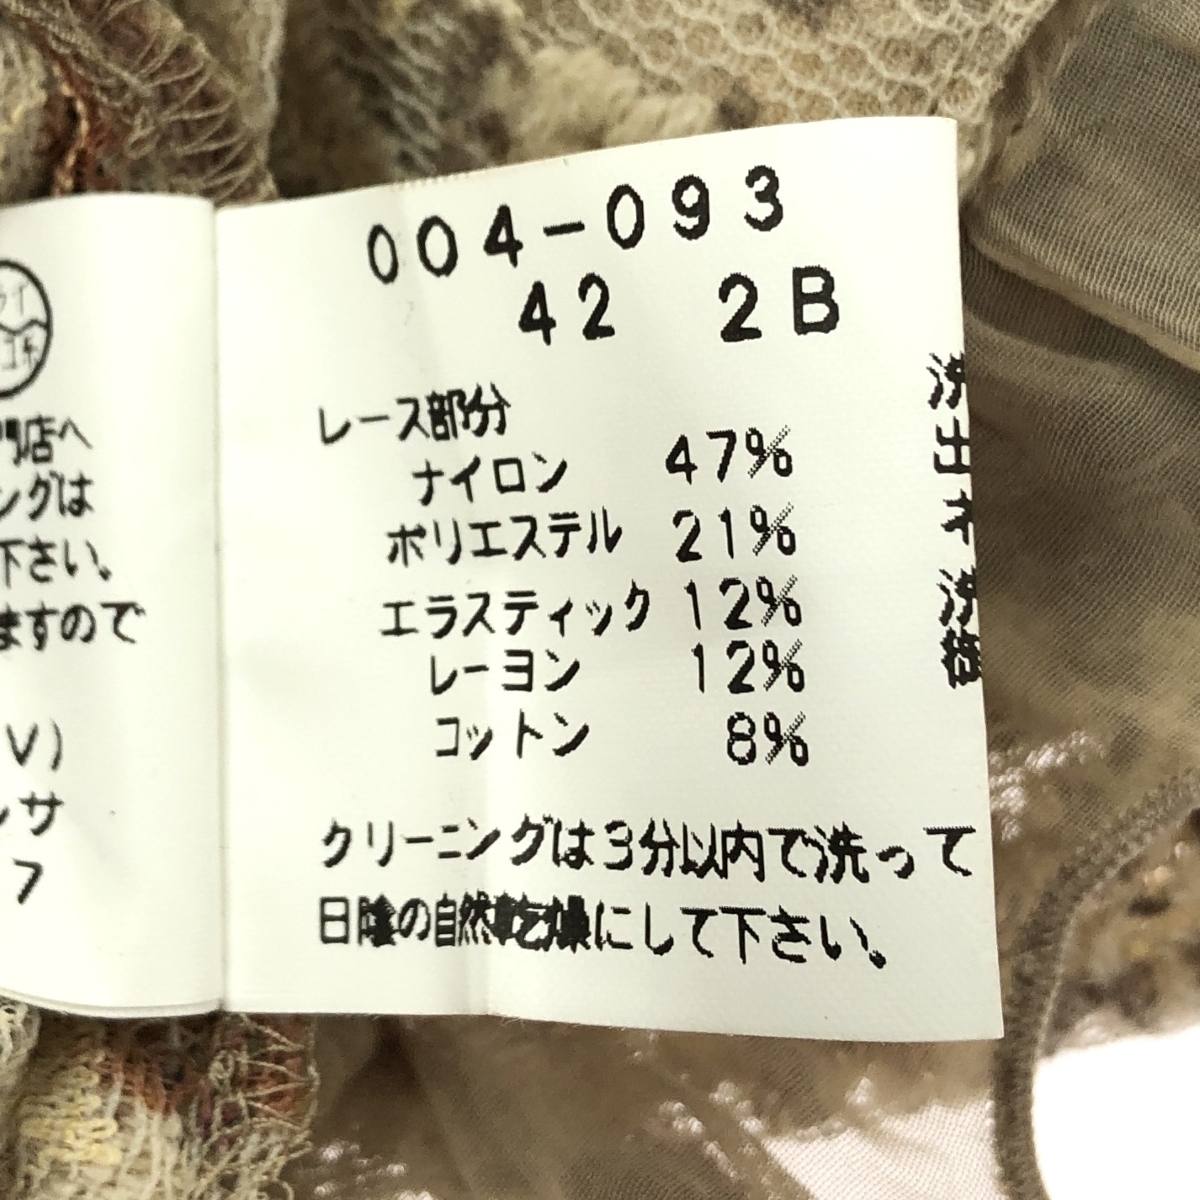 004-093
42 2B
レース部分
ナイロン 47%
ポリエステル 21%
エラスティック 12%
レーヨン 12%
コットン 8%
クリーニングは3分以内で洗って
日陰の自然乾燥にして下さい。
門店へ
ングは
下さい。
ますので
V)
ンサ
フ
洗
出
ネ
洗